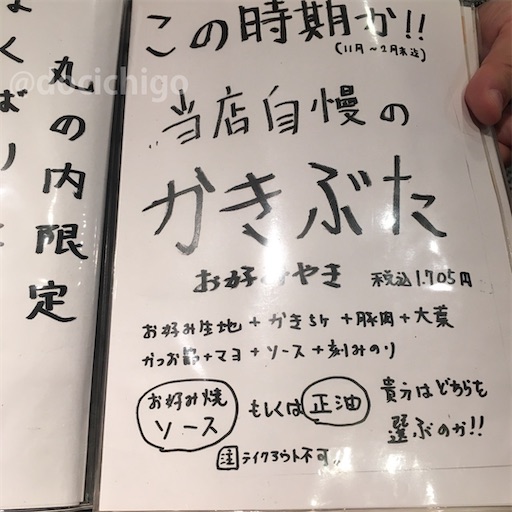 よくばり
丸の内限定
@docichigo
この時期か!!
(11月～2月末迄)
当店自慢の
かきぶた
お好みやき 税込1,705円
お好み生地+かき5ヶ+豚肉+大葉
かつお節+マヨ+ソース+刻みのり
お好み焼ソース もしくは 正油 貴方はどちらを
選ぶのか!!
注 テイクアウト不可